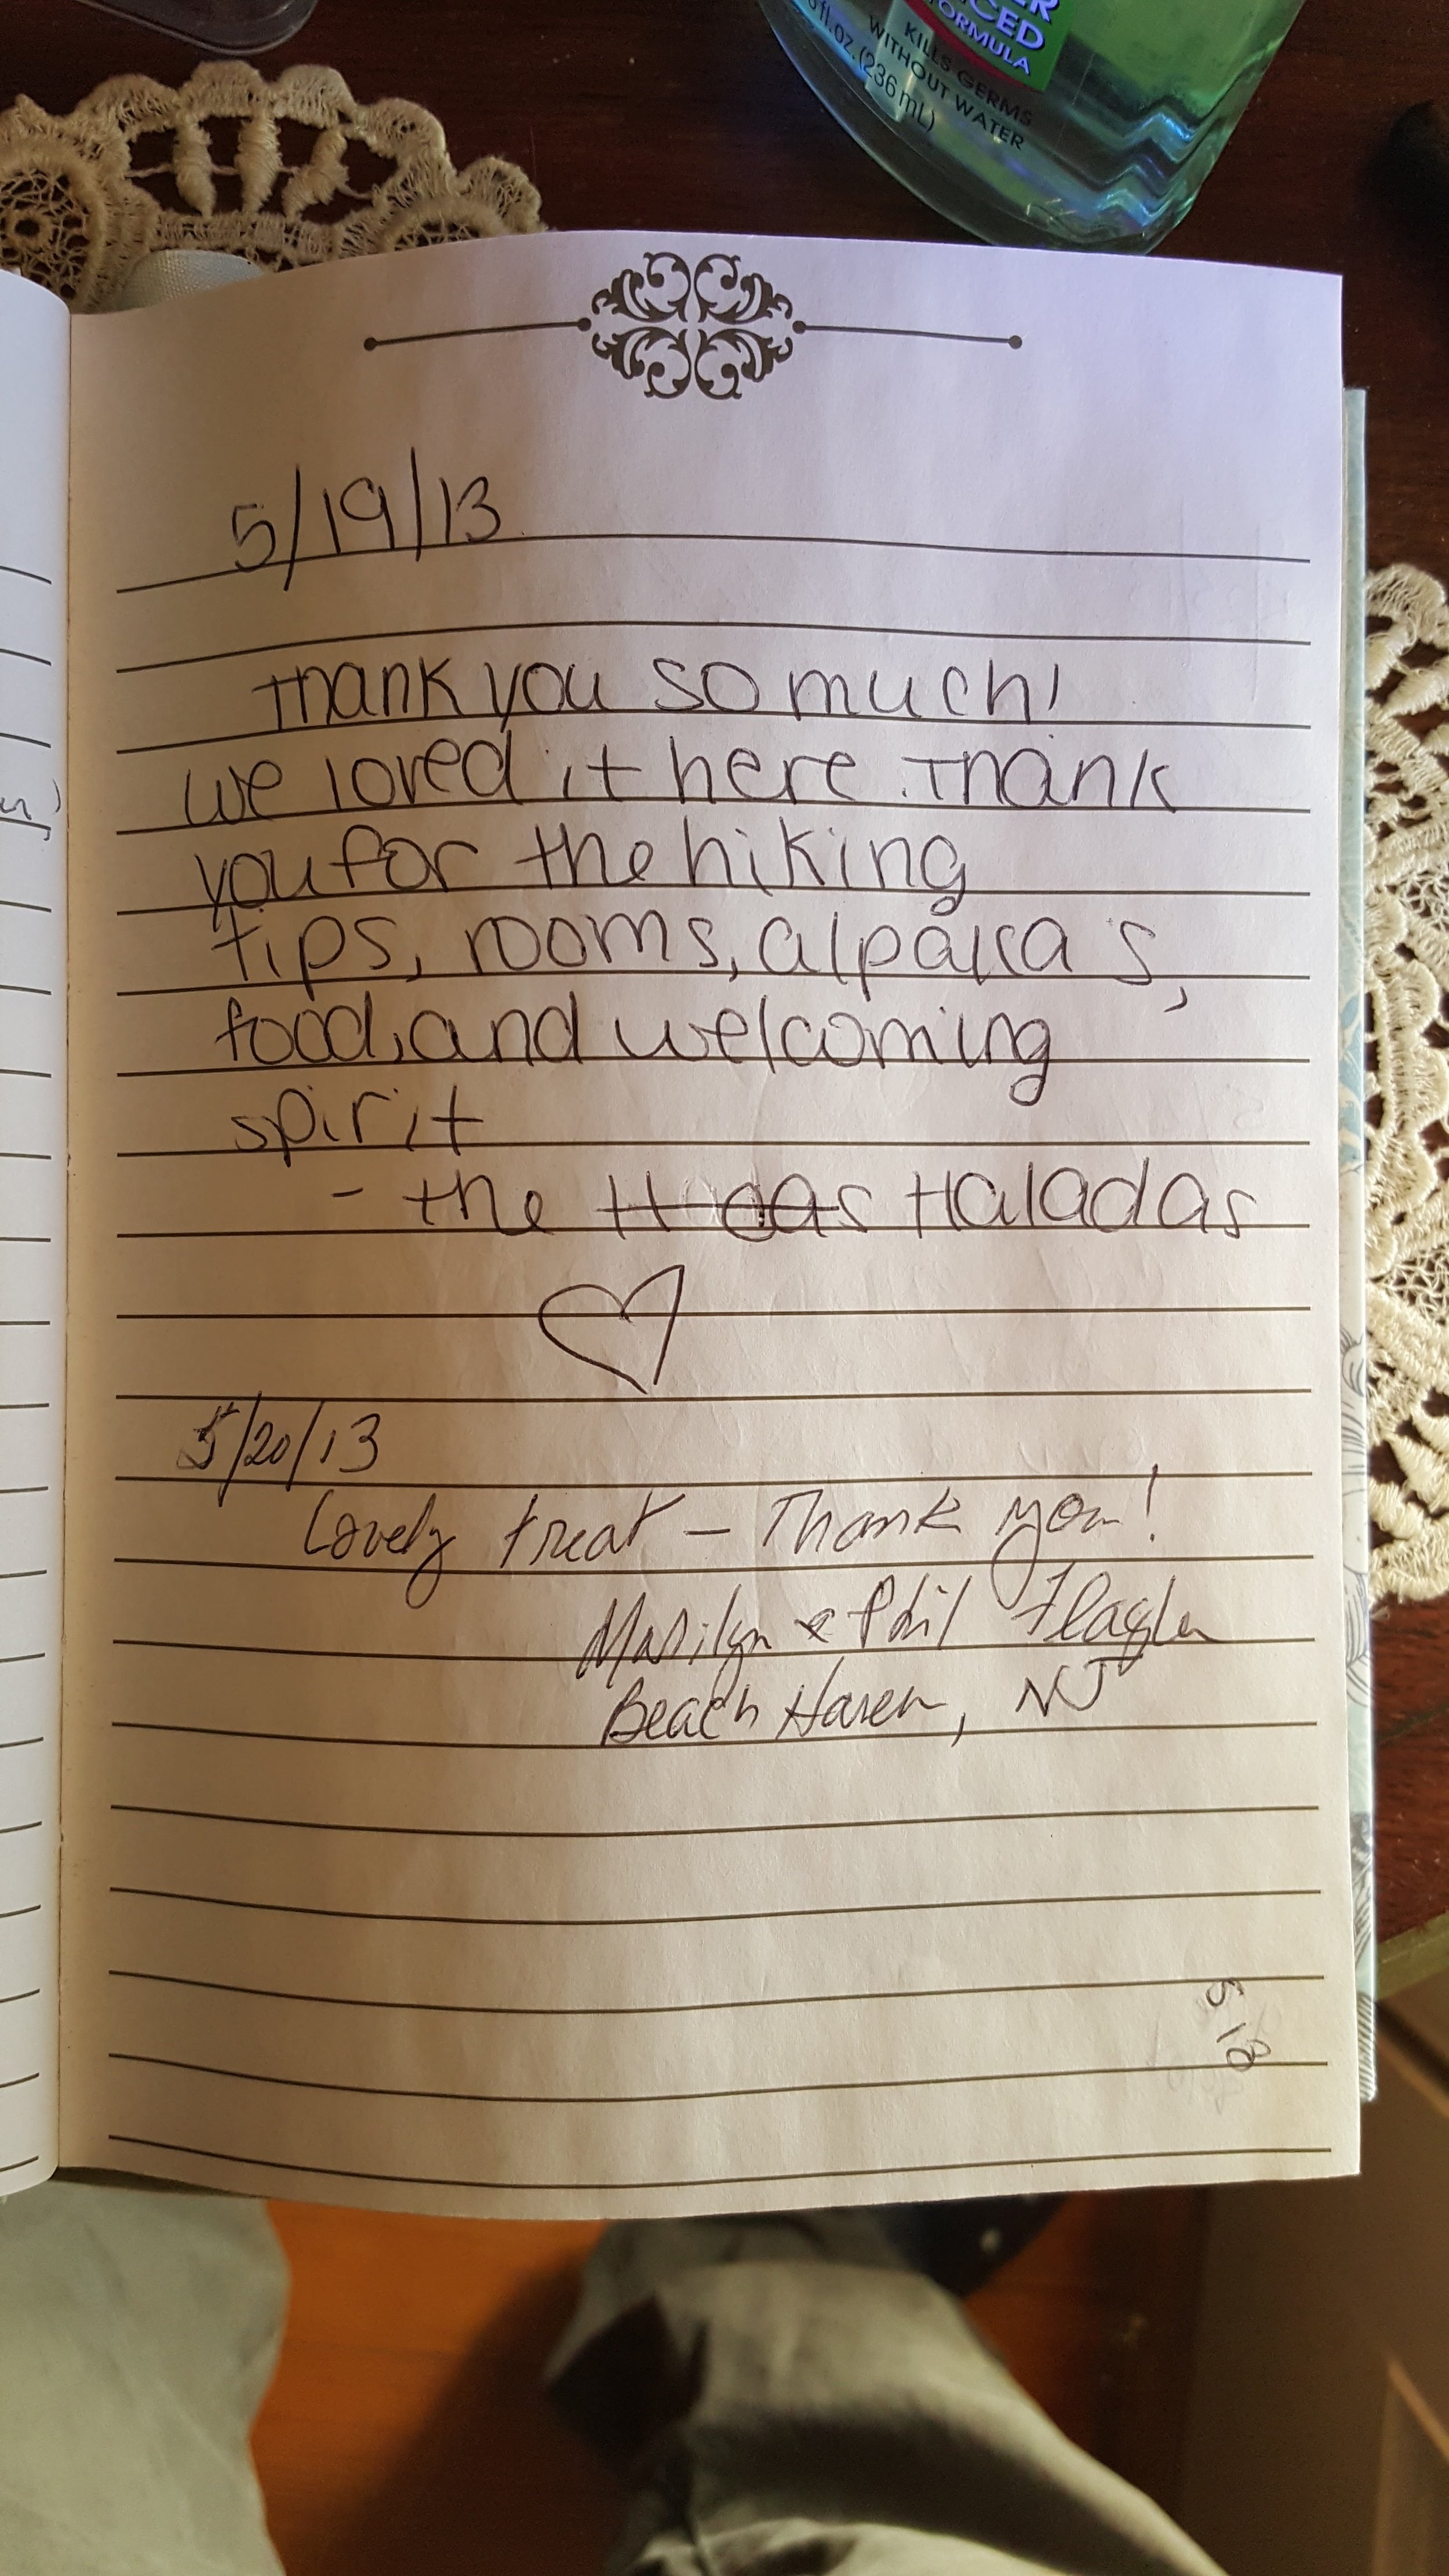 ER
CED
FORMULA
fl.oz. (236 mL)
KILLS GERMS
WITHOUT WATER
5/19/13
Thank you so much!
we loved it here. Thank
you for the hiking
tips, rooms, alpacca's,
food, and welcoming
spirit
- the Haladas
5/20/13
Lovely treat – Thank you!
Marilyn & Phil Flagler
Beach Haven, NJ